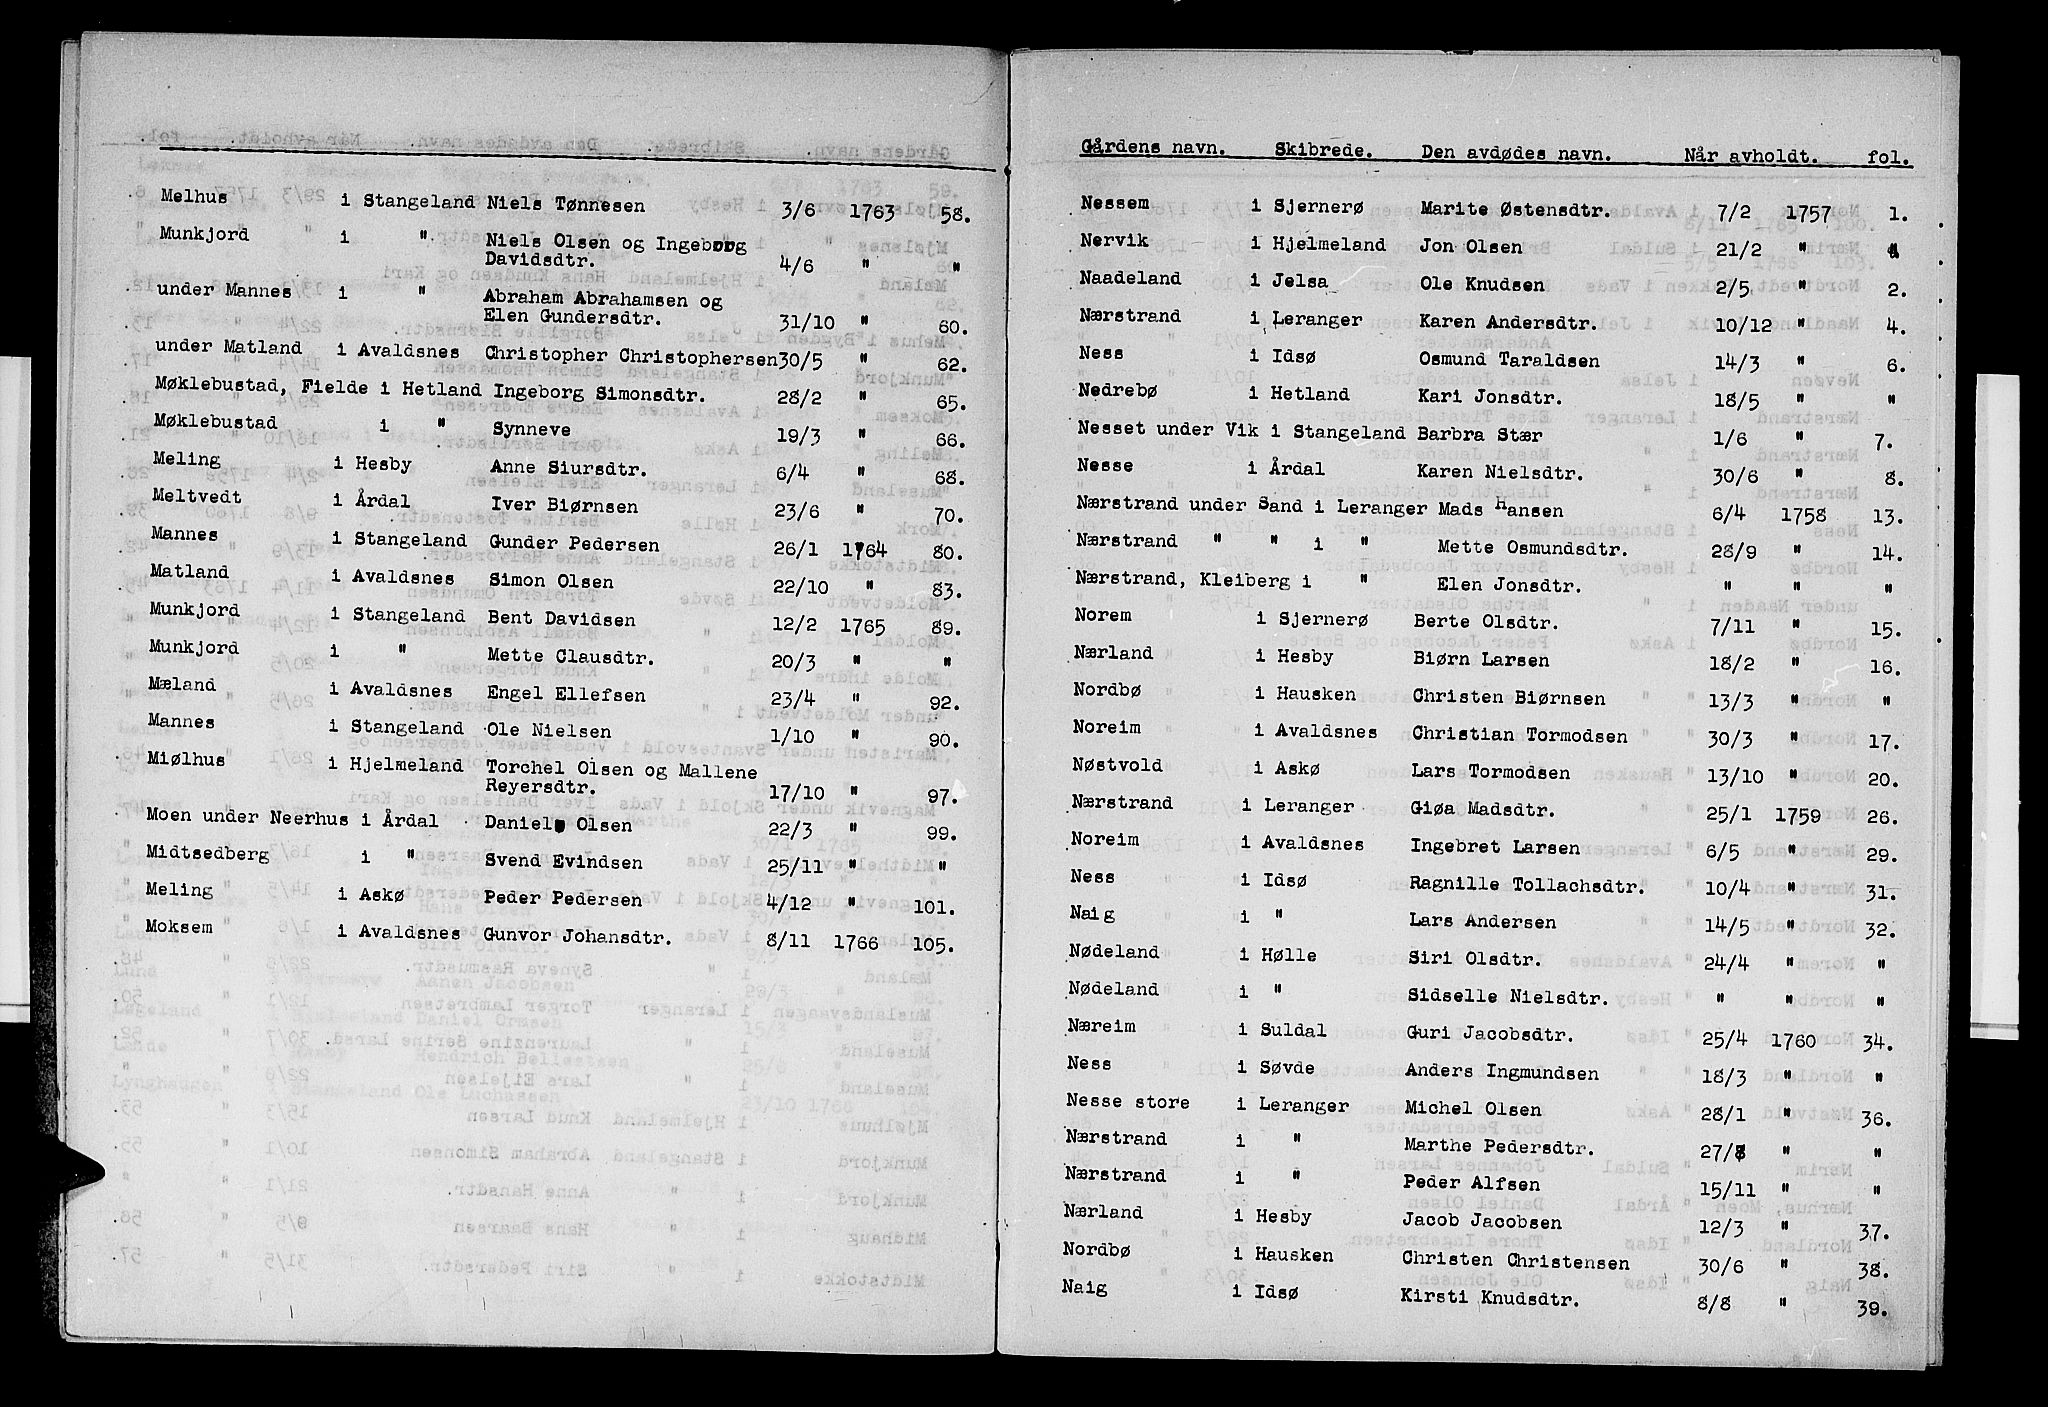 Melhus i Stangeland Niels Tønnesen 3/6 1763 58.
Munkjord i " Niels Olsen og Ingeborg
Davidsdtr. 4/6 " "
under Mannes i " Abraham Abrahamsen og
Elen Gundersdtr. 31/10 " 60.
under Matland i Avaldsnes Christopher Christophersen 30/5 " 62.
Møklebustad, Fielde i Hetland Ingeborg Simonsdtr. 28/2 " 65.
Møklebustad i " Synneve 19/3 " 66.
Meling i Hesby Anne Siursdtr. 6/4 " 68.
Meltvedt i Årdal Iver Biørnsen 23/6 " 70.
Mannes i Stangeland Gunder Pedersen 26/1 1764 80.
Matland i Avaldsnes Simon Olsen 22/10 " 83.
Munkjord i Stangeland Bent Davidsen 12/2 1765 89.
Munkjord i " Mette Clausdtr. 20/3 " "
Mæland i Avaldsnes Engel Ellefsen 23/4 " 92.
Mannes i Stangeland Ole Nielsen 1/10 " 90.
Miølhus i Hjelmeland Torchel Olsen og Mallene
Reyersdtr. 17/10 " 97.
Moen under Neerhus i Årdal Daniel Olsen 22/3 " 99.
Midtsedberg i " Svend Evindsen 25/11 " "
Meling i Askø Peder Pedersen 4/12 " 101.
Moksem i Avaldsnes Gunvor Johansdtr. 8/11 1766 105.
Gårdens navn. Skibrede. Den avdødes navn. Når avholdt. fol.
Nessem i Sjernerø Marite Østensdtr. 7/2 1757 1.
Nervik i Hjelmeland Jon Olsen 21/2 " "
Naadeland i Jelsa Ole Knudsen 2/5 " 2.
Nærstrand i Leranger Karen Andersdtr. 10/12 " 4.
Ness i Idsø Osmund Taraldsen 14/3 " 6.
Nedrebø i Hetland Kari Jonsdtr. 18/5 " "
Nesset under Vik i Stangeland Barbra Stær 1/6 " 7.
Nesse i Årdal Karen Nielsdtr. 30/6 " 8.
Nærstrand under Sand i Leranger Mads Hansen 6/4 1758 13.
Nærstrand " " i " Mette Osmundsdtr. 28/9 " 14.
Nærstrand, Kleiberg i " Elen Jonsdtr. " " "
Norem i Sjernerø Berte Olsdtr. 7/11 " 15.
Nærland i Hesby Biørn Larsen 18/2 " 16.
Nordbø i Hausken Christen Biørnsen 13/3 " "
Noreim i Avaldsnes Christian Tormodsen 30/3 " 17.
Nøstvold i Askø Lars Tormodsen 13/10 " 20.
Nærstrand i Leranger Giøa Madsdtr. 25/1 1759 26.
Noreim i Avaldsnes Ingebret Larsen 6/5 " 29.
Ness i Idsø Ragnille Tollachsdtr. 10/4 " 31.
Naig i " Lars Andersen 14/5 " 32.
Nødeland i Hølle Siri Olsdtr. 24/4 " "
Nødeland i " Sidselle Nielsdtr. " " "
Næreim i Suldal Guri Jacobsdtr. 25/4 1760 34.
Ness i Søvde Anders Ingmundsen 18/3 " "
Nesse store i Leranger Michel Olsen 28/1 " 36.
Nærstrand i " Marthe Pedersdtr. 27/8 " "
Nærstrand i " Peder Alfsen 15/11 " "
Nærland i Hesby Jacob Jacobsen 12/3 " 37.
Nordbø i Hausken Christen Christensen 30/6 " 38.
Naig i Idsø Kirsti Knudsdtr. 8/8 " 39.